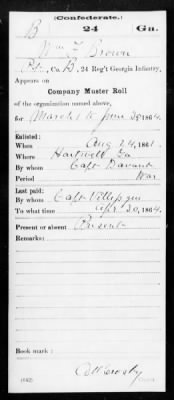 (Confederate.)
B 24 Ga.
Wm T Brown
Pvt, Co. B, 24 Reg't Georgia Infantry.
Appears on
Company Muster Roll
of the organization named above,
for March 1 to June 30, 1864.
Enlisted:
When Aug 24, 1861.
Where Hartwell Ga
By whom Capt
Period War
Last paid:
By whom Capt
To what time Apr 30, 1864.
Present or absent Present
Remarks:
Book mark:
(642)